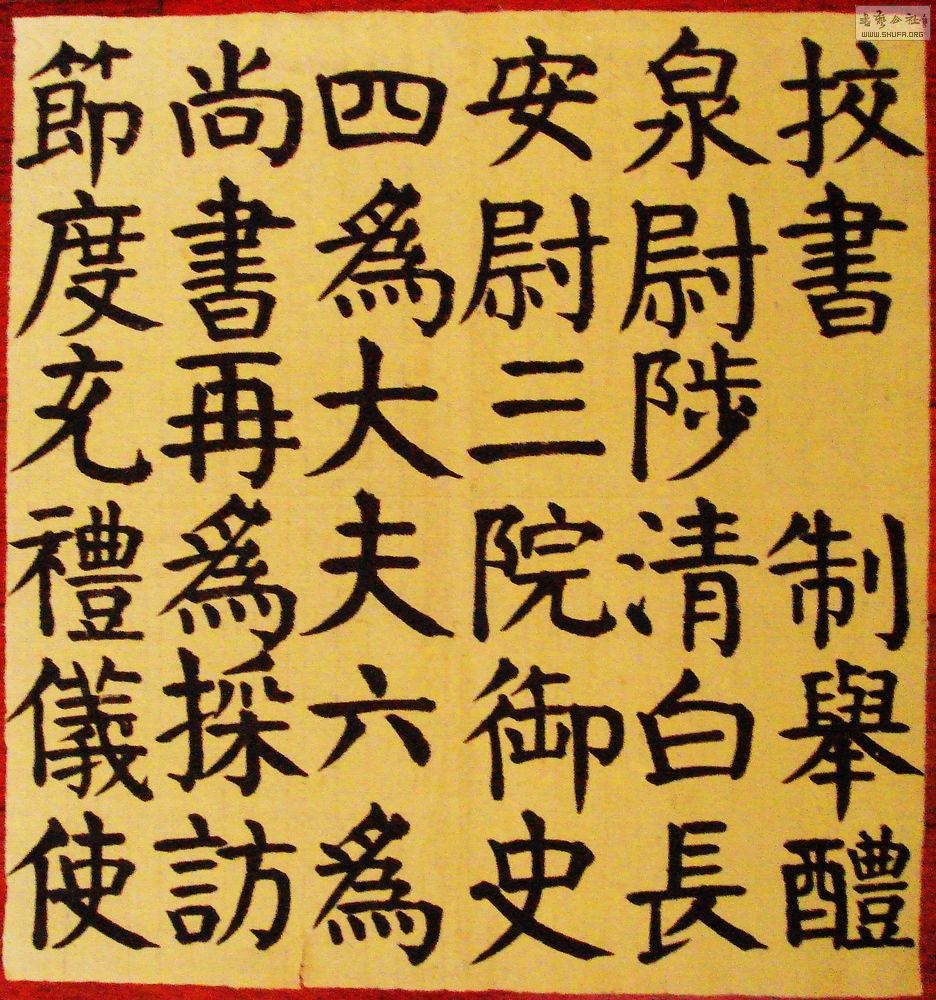 挍書 制舉醴
泉尉陟清白長
安尉三院御史
四為大夫六為
尚書再為採訪
節度充禮儀使
WWW.SHUFA.ORG